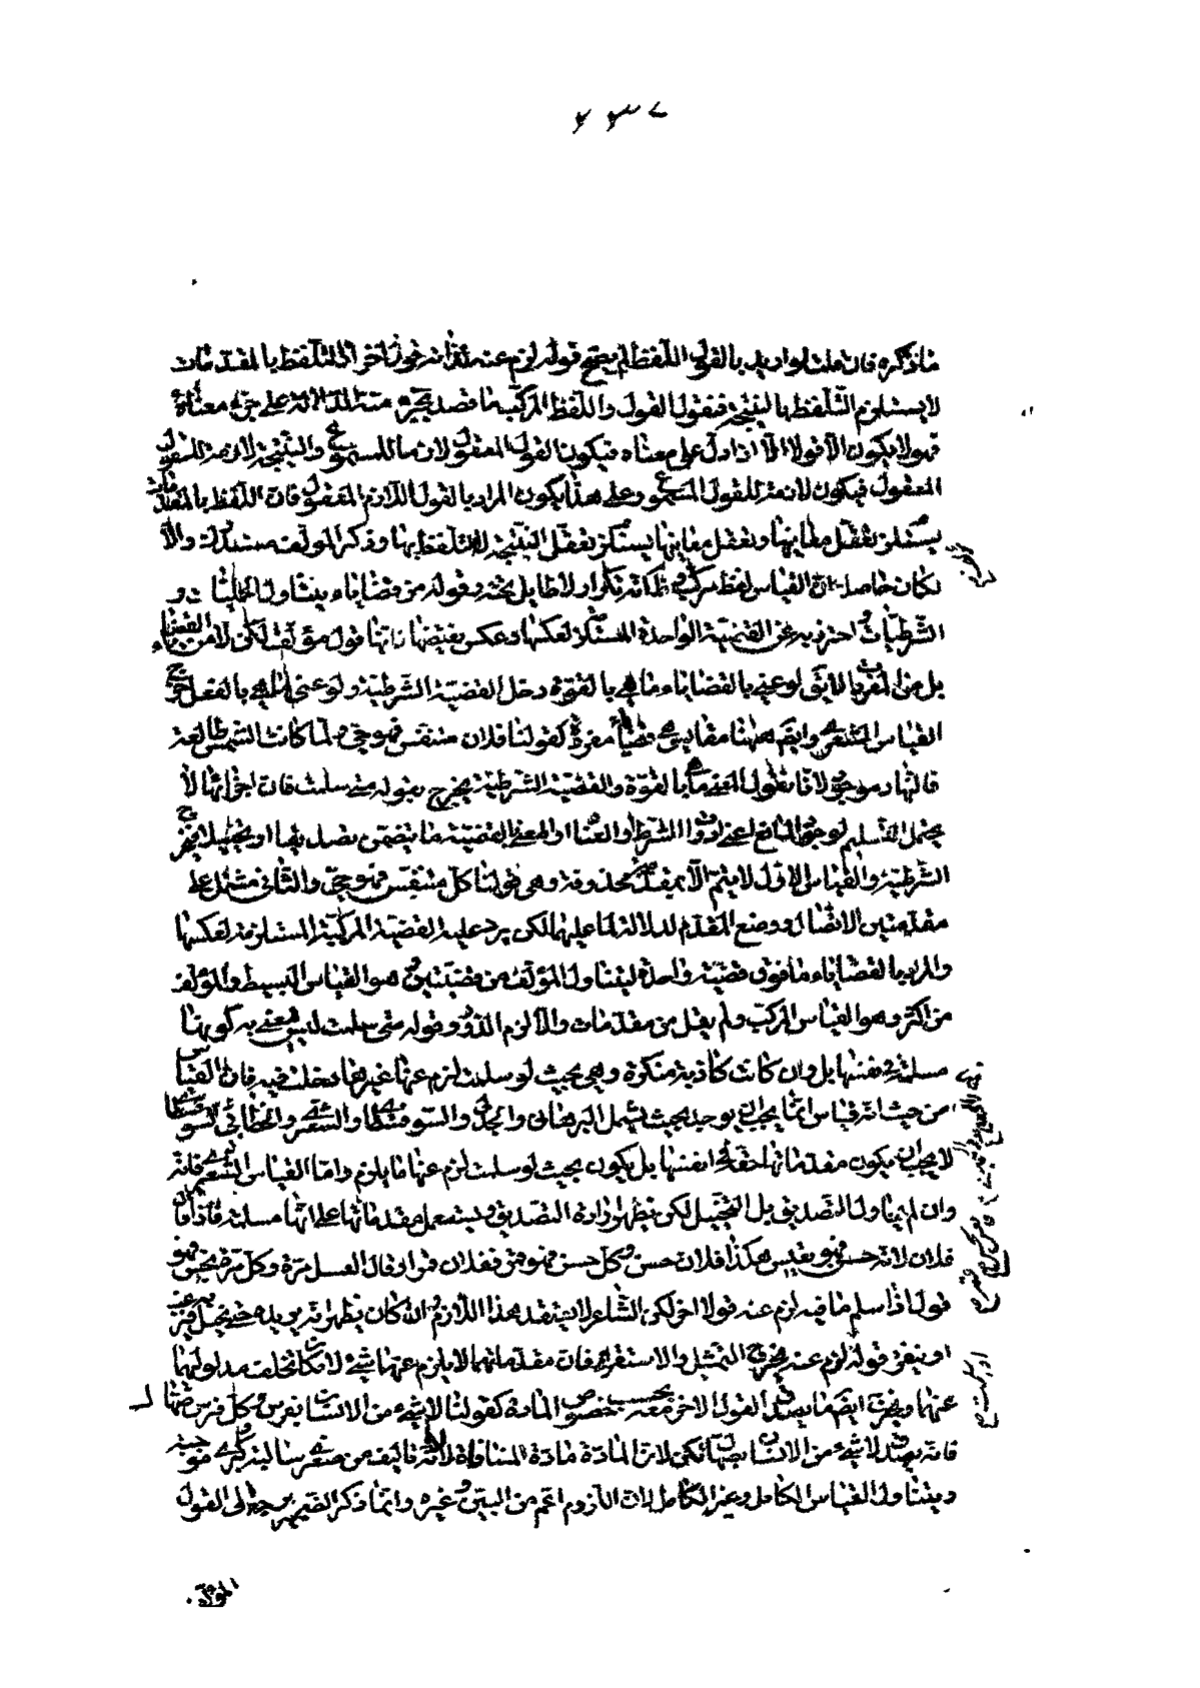 ما ذكره فان قلت لو اريد بالقول اللفظ لم يصح قوله لزم عنه لذاته قول آخر اذ التلفظ بالمقدمات
لا يستلزم التلفظ بالنتيجة فنقول القول واللفظ المركب ما قصد بجزء منه الدلالة على جزء معناه
فهو لا يكون الا قولا الا اذا دل على معناه فيكون القول المعقول لازما للمسموع والنتيجة لازمة للقول
المعقول فيكون لازمة للقول المسموع وعلى هذا يكون المراد بالقول اللازم المعقول فان اللفظ بالمقدمات
يستلزم تعقل معانيها وتعقل معانيها يستلزم تعقل النتيجة لا التلفظ بها وذكر المؤلف مستدرك والا
لكان حاصله ان القياس لفظ مركب وانه تكرار لا طايل تحته وقوله من قضايا يتناول الحمليات و
الشرطيات احترز به عن القضية الواحدة المستلزمة لعكسها وعكس نقيضها فانها قول مؤلف لكن لا من القضايا
بل من المفردات لا يق لو عنى بالقضايا ما هي بالقوة دخل القضية الشرطية ولو عنى ما هي بالفعل خرج
القياس الشعرى وايضا ههنا مقاييس قضاياها مفردة كقولنا فلان متنفس فهو حي ولما كانت الشمس طالعة
فالنهار موجود لانا نقول المعنى ما بالقوة والقضية الشرطية يخرج بقوله متى سلمت فان اجزائها لا
يحتمل التسليم لوجود المانع اعنى ادوات الشرط والعناد او المعنى بالقضية ما يتضمن تصديقا او تخييلا فيخرج
الشرطية والقياس الاول لا يتم الا بمقدمة محذوفة وهي قولنا كل متنفس فهو حي والثاني مشتمل على
مقدمتين الاتصال ووضع المقدم لدلالة لما عليهما لكن يرد عليه القضية المركبة المستلزمة لعكسها
والمراد بالقضايا ما فوق قضية واحدة ليتناول المؤلف من قضيتين وهو القياس البسيط والمؤلف
من اكثر وهو القياس المركب ولم يقل من مقدمات والا لزم الدور وقوله متى سلمت ليس يعنى به كونها
مسلمة في نفسها بل وان كانت كاذبة منكرة وهي بحيث لو سلمت لزم عنها غيرها دخلت فيه فان القياس
من حيث انه قياس انما يجب ان يوجد بحيث يشمل البرهاني والجدلي والسوفسطائي والشعري والخطابي
لا يجب ان يكون مقدماتها حقة في انفسها بل يكون بحيث لو سلمت لزم عنها ما يلزم واما القياس الشعرى فانه
وان لم يتناول التصديق بل التخييل لكن يظهر ارادة التصديق ويستعمل مقدماتها على انها مسلمة فاذا قال
فلان لانه حسن فهو يقيس هكذا فلان حسن وكل حسن فهو قمر ففلان قمر او قال العسل مرة وكل مرة نجس فهو
قول اذا سلم ما فيه لزم عنه قول آخر لكن الشاعر لا يعتقد هذا اللازم وان كان يظهر انه يريده حتى يخيل به فيرغب
او ينفر قوله لزم عنه يخرج التمثيل والاستقراء فان مقدماتهما لا يلزم عنها شيء لامكان تخلف مدلوليهما
عنهما ويخرج ايضا ما يصدق القول الآخر معه بحسب خصوص المادة كقولنا لا شيء من الانسان بفرس وكل فرس صهال
فانه يصدق لا شيء من الانسان بصهال لكن لان المادة مادة المنافاة لا لانه تاليف من صغرى سالبة وكبرى موجبة
ويتناول القياس الكامل وغير الكامل لان اللزوم اعم من البين وغيره وانما ذكر الضمير ليرجع الى القول
المؤلف